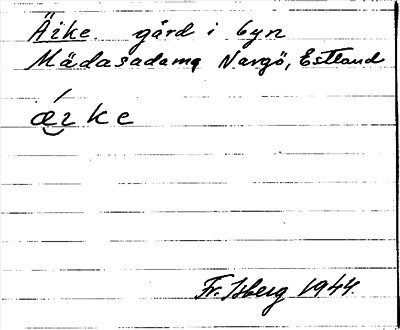 Äike gård i byn
Mädasadama Nargö, Estland
ǽi̯ke
Fr. Isberg 1944.